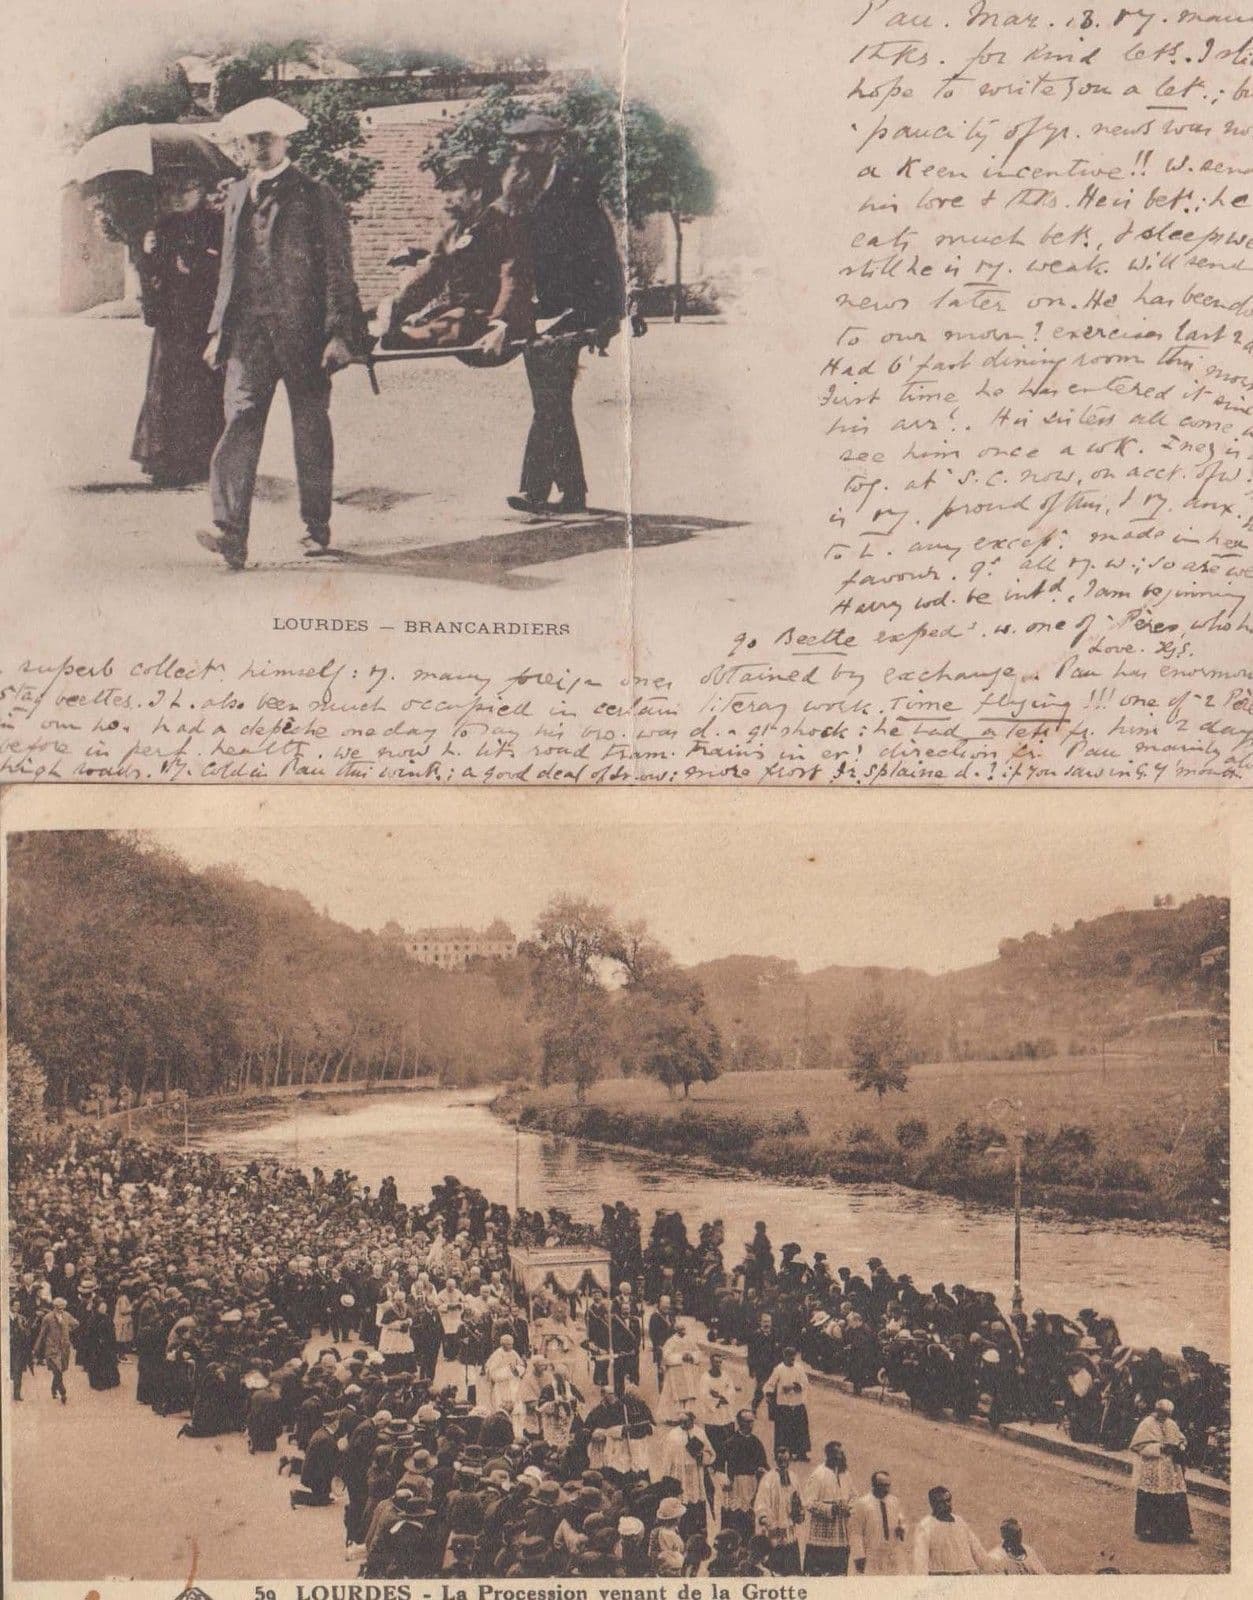 Pau. Mar. 18. ry. many
thks. for kind let. I
hope to write you a let.;
paucity of yr. news was
a keen incentive!! W. send
his love & thks. He is bet.; he
eats much bet., & sleeps
still he is ry. weak. Will send
news later on. He has been
to our morn? exercises last 2
Had b'fast dining room this
First time he has entered it
his arr!. His sisters all come
see him once a wk. Inez is
tog. at S.C. now, on acct. of W.
is ry. proud of this, & ry. anx.
to h. any excep: made in her
favour. all ry. w.; so are we
Harry wd. be intd. I am beginning
LOURDES — BRANCARDIERS
go Beetle exped. w. one of Pères, who
Love.
superb collect himself: ry. many foreign ones obtained by exchange. Pau has enormous
Stag beetles. I h. also been much occupied in certain literary work. Time flying!!! one of 2 Pères
in our ho. had a depêche one day to say his bro. was d. a gt shock; he had a lett fr. him 2 days
before in perf. health. We now h. road tram. trains in direction fr. Pau mainly
high roads. ry. cold in Pau this wint.; a good deal of snow; more frost if you saw in
59 LOURDES - La Procession venant de la Grotte